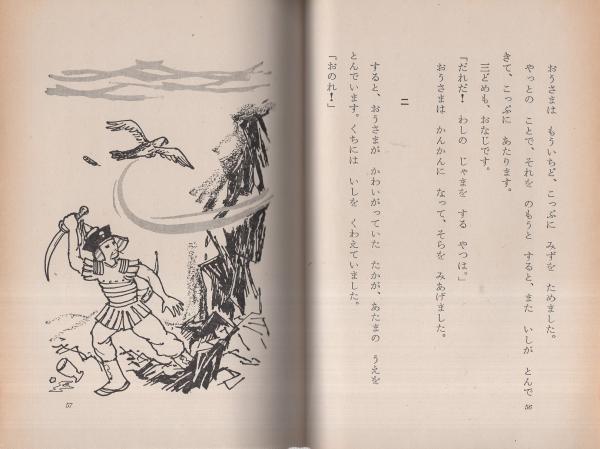 おうさまは もういちど、こっぷに みずを ためました。
やっとの ことで、それを のもうと すると、また いしが とんで
きて、こっぷに あたります。
三どめも、おなじです。
「だれだ! わしの じゃまを する やつは。」
おうさまは かんかんに なって、そらを みあげました。
二
すると、おうさまが かわいがっていた たかが、あたまの うえを
とんでいます。くちには いしを くわえていました。
「おのれ!」
56
57